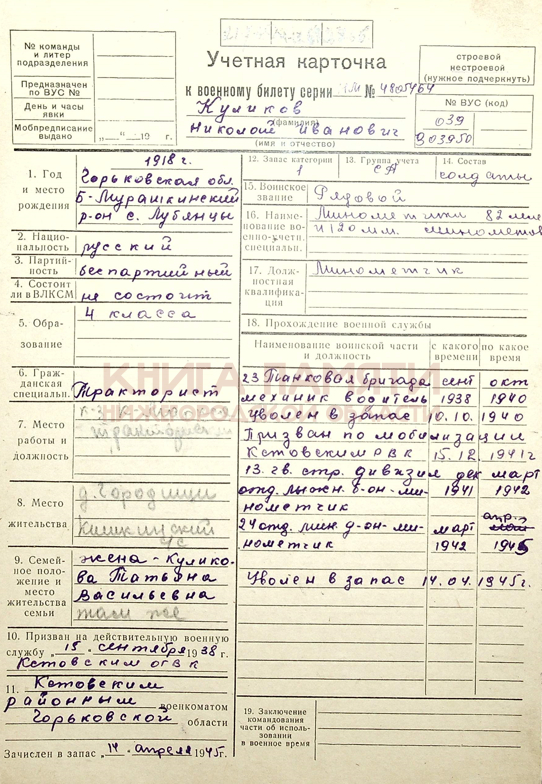 № команды
и литер
подразделения
Предназначен
по ВУС №
День и часы
явки
Мобпредписание
выдано
„ — “ 19 г.
Учетная карточка
к военному билету серии № 4805464
Куликов
(фамилия)
Николай Иванович
(имя и отчество)
строевой
нестроевой
(нужное подчеркнуть)
№ ВУС (код)
039
903950
1. Год
и место
рождения
1918 г.
Горьковская обл.
Б-Мурашкинский
р-он с. Лубянцы
2. Нацио-
нальность
русский
3. Партий-
ность
беспартийный
4. Состоит
ли в ВЛКСМ
не состоит
5. Обра-
зование
4 класса
6. Граж-
данская
специальн.
Тракторист
7. Место
работы и
должность
тракторист
8. Место
жительства
д. Городищи
с/с
9. Семей-
ное поло-
жение и
место
жительства
семьи
жена - Кулико-
ва Татьяна
Васильевна
там же
10. Призван на действительную военную
службу „15“ сентября 1938 г.
Кстовским ОГВК
11. Кстовским
районным военкоматом
Горьковской области
Зачислен в запас „14“ апреля 1945 г.
12. Запас категории
1
13. Группа учета
СА
14. Состав
солдаты
15. Воинское
звание
Рядовой
16. Наиме-
нование во-
енно-учетн.
специальн.
Минометчик 82 мм
и 120 мм. минометов
17. Долж-
ностная
квалифика-
ция
Минометчик
18. Прохождение военной службы
Наименование воинской части
и должность
с какого
времени
по какое
время
23 Танковая бригада сент окт
механик водитель 1938 1940
Уволен в запас 10.10. 1940
Призван по мобилизации
Кстовским РВК 15.12 1941 г
13. гв. стр. дивизия дек март
отд. лыжн. б-он. ми- 1941 1942
нометчик
24 отд. мин. д-он-ми- март апр.
нометчик 1942 1945
Уволен в запас 14.04. 1945 г.
19. Заключение
командования
части об исполь-
зовании
в военное время
КНИГА ПАМЯТИ
НИЖЕГОРОДСКОЙ ОБЛАСТИ